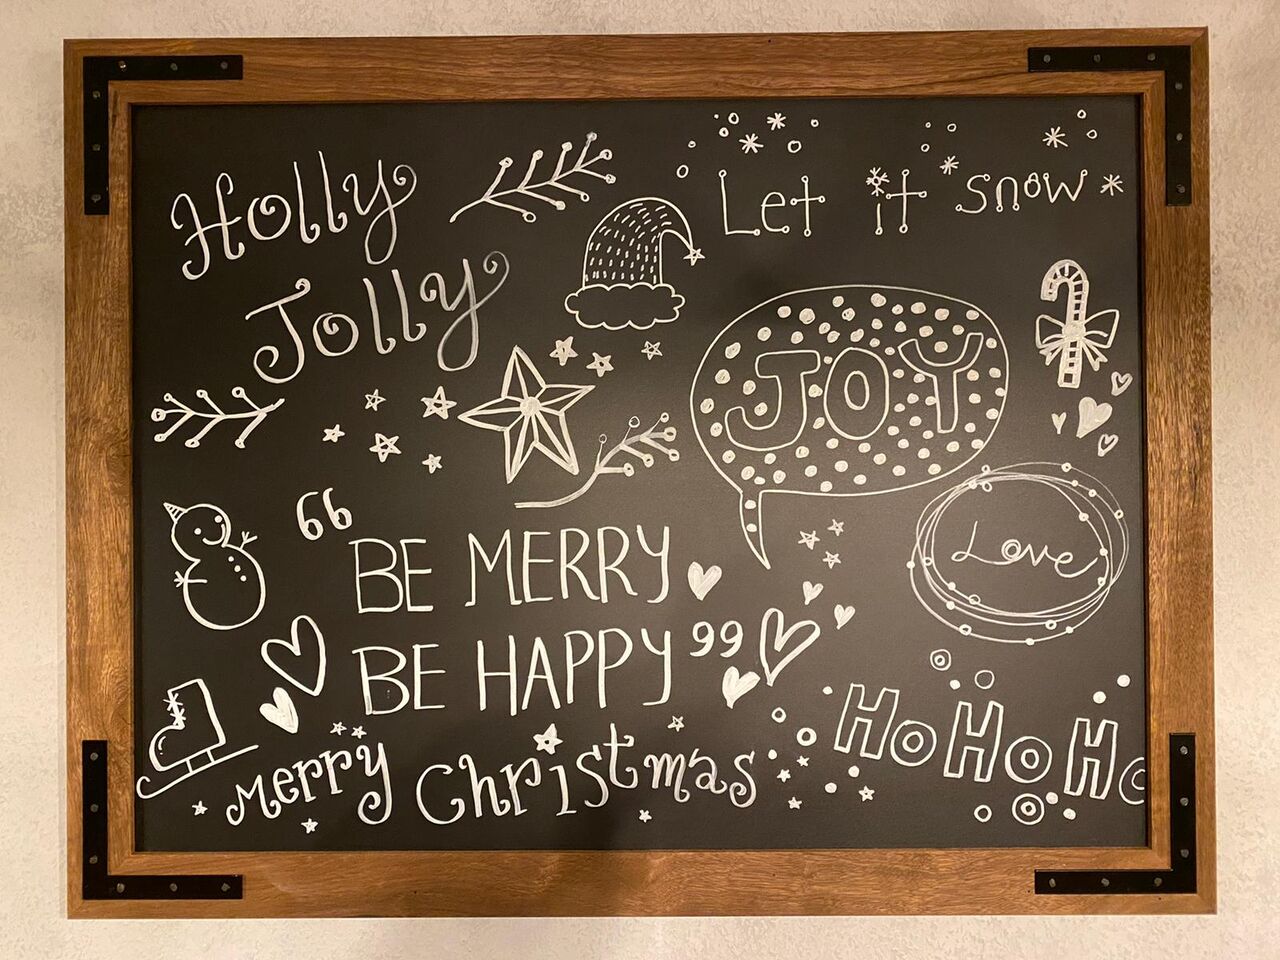 Holly
Jolly
Let it snow
JOY
Love
“BE MERRY
BE HAPPY”
Merry Christmas
HoHoHo